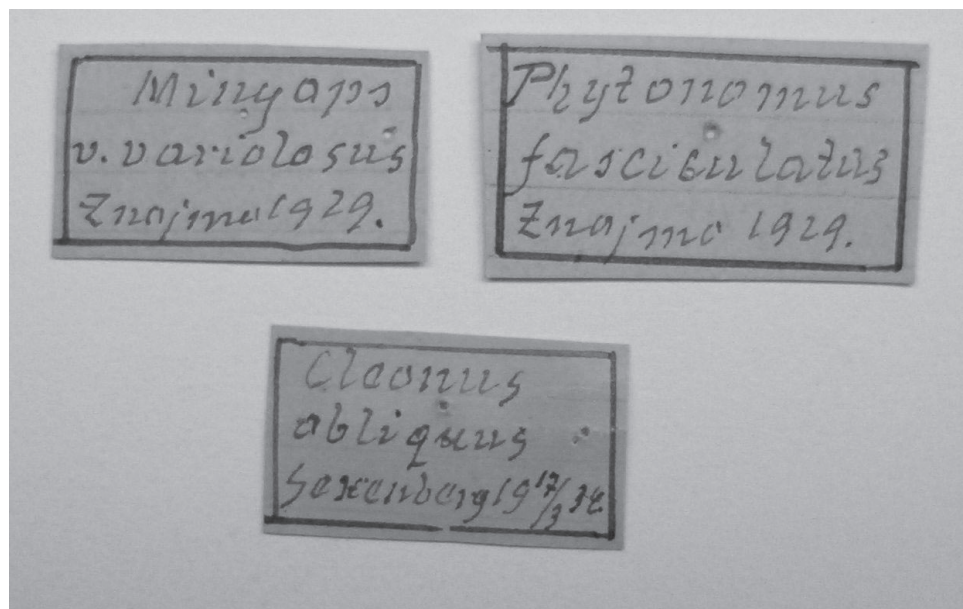 Minyops
v. variolosus
Znojmo 1929.
Phytonomus
fasciculatus
Znojmo 1929.
Cleonus
obliquus
Sexenberg 19 17/3 34.